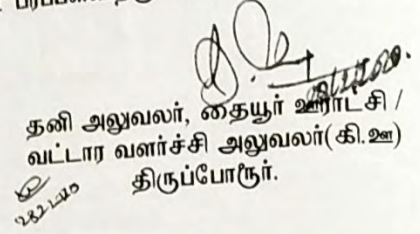 தனி அலுவலர், தையூர் ஊராட்சி /
வட்டார வளர்ச்சி அலுவலர்(கி.ஊ)
திருப்போரூர்.